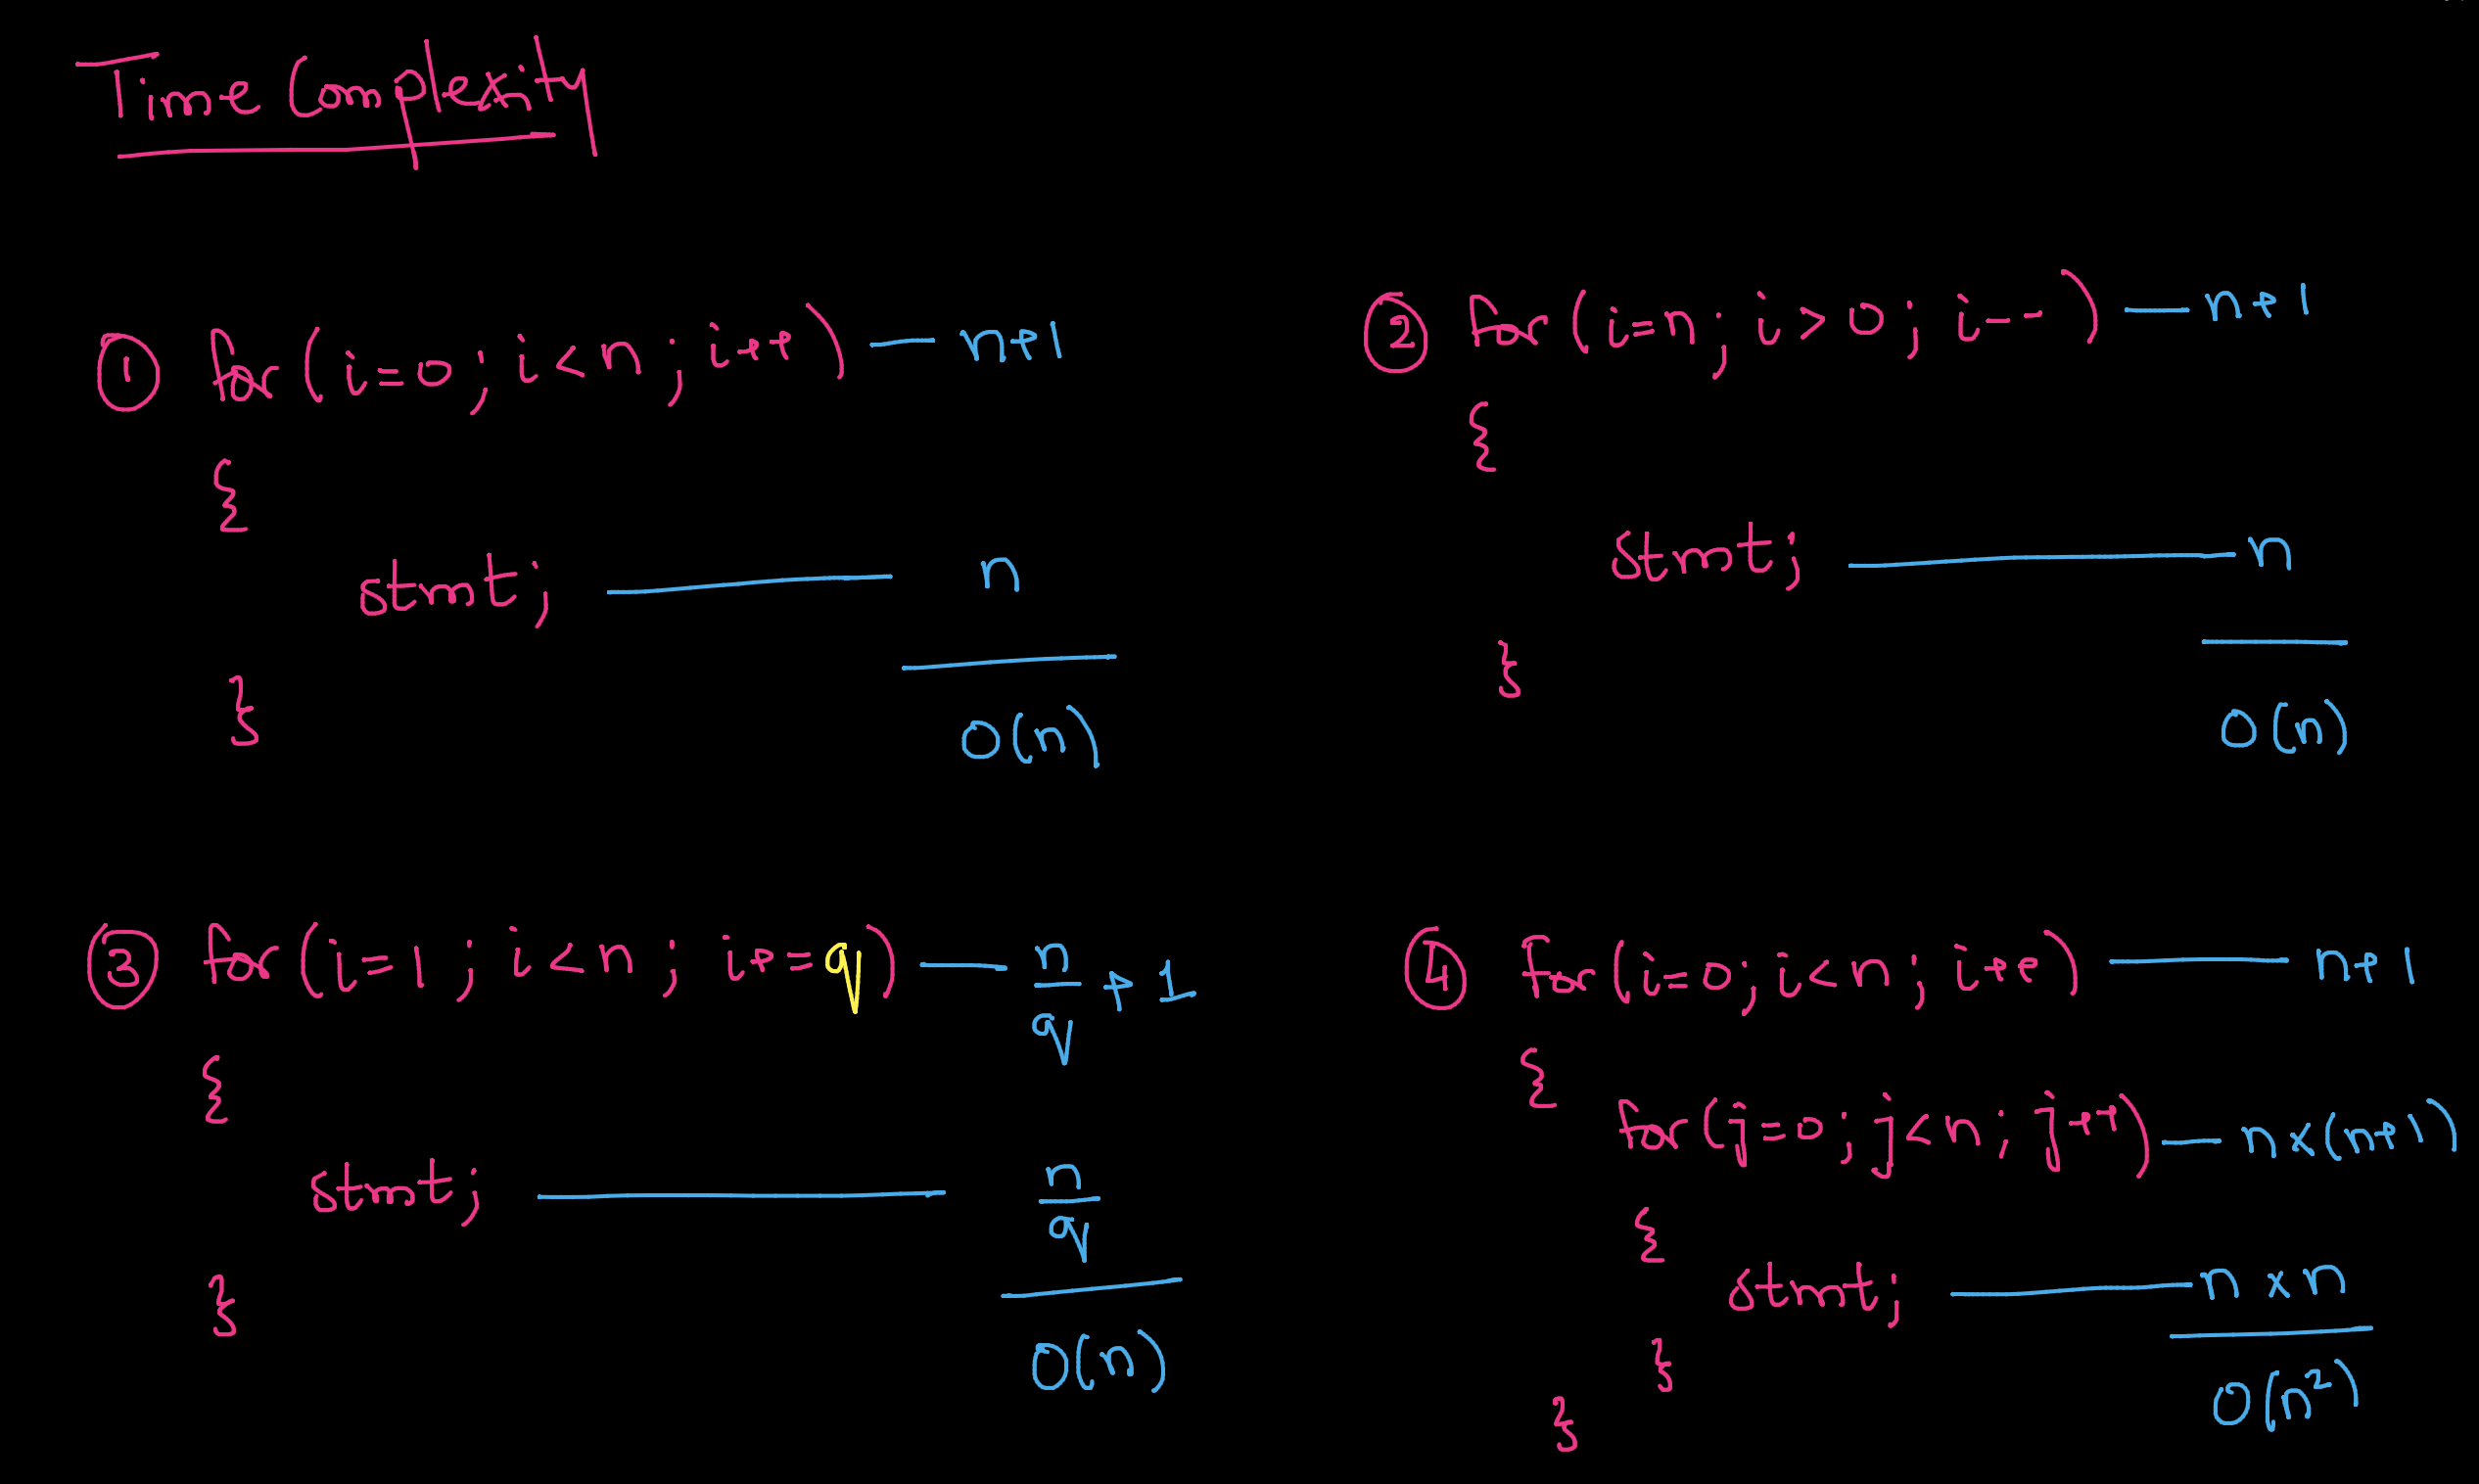 Time Complexity
① for (i=0; i<n; i++) — n+1
{
stmt; — n
}
O(n)
② for (i=n; i>0; i--) — n+1
{
stmt; — n
}
O(n)
③ for (i=1; i<n; i+=q) — n/q + 1
{
stmt; — n/q
}
O(n)
④ for (i=0; i<n; i++) — n+1
{
for (j=0; j<n; j++) — n×(n+1)
{
stmt; — n×n
}
}
O(n²)